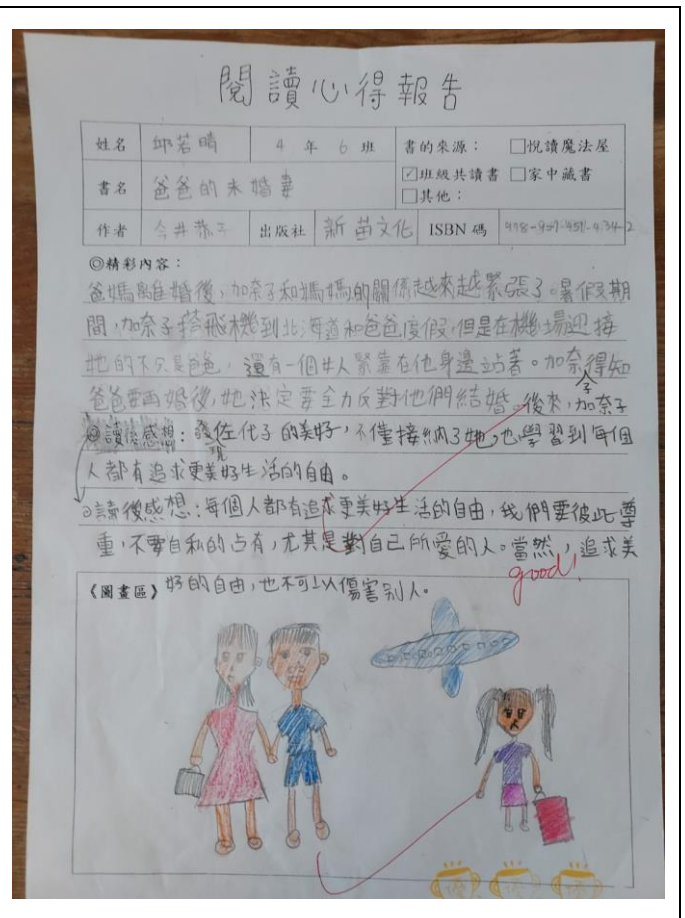 閱讀心得報告
姓名 邱若晴 4 年 6 班 書的來源： □悅讀魔法屋
☑班級共讀書 □家中藏書
書名 爸爸的未婚妻 □其他：
作者 今井恭子 出版社 新苗文化 ISBN 碼 978-957-451-434-2
◎精彩內容：
爸媽離婚後，加奈子和媽媽的關係越來越緊張了。暑假期
間，加奈子搭飛機到北海道和爸爸度假，但是在機場迎接
她的不只是爸爸，還有一個女人緊靠在他身邊站著。加奈子得知
爸爸要再婚後，她決定要全力反對他們結婚。後來，加奈子
發現佐代子的美好，不僅接納了她，也學習到每個
人都有追求更美好生活的自由。
◎讀後感想：每個人都有追求更美好生活的自由，我們要彼此尊
重，不要自私的占有，尤其是對自己所愛的人。當然，追求美
good!
《圖畫區》好的自由，也不可以傷害別人。
優 優 優